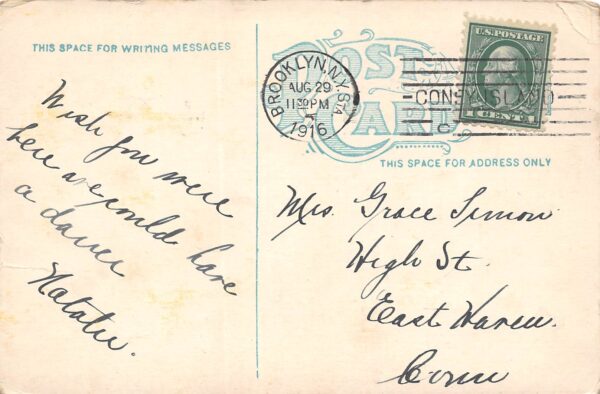 THIS SPACE FOR WRITING MESSAGES
Wish you were
here we could have
a dance
Natalie.
POST
CARD
BROOKLYN, N.Y. STA
AUG 29
11 30 PM
1916
CONEY ISLAND
C
U.S. POSTAGE
1 CENT 1
THIS SPACE FOR ADDRESS ONLY
Mrs. Grace Simon
High St.
East Haven.
Conn